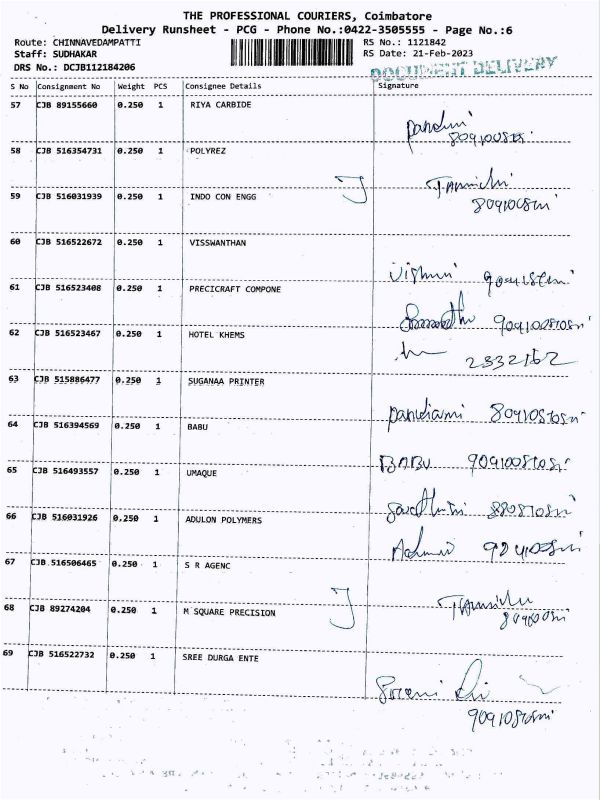 THE PROFESSIONAL COURIERS, Coimbatore
Delivery Runsheet - PCG - Phone No.:0422-3505555 - Page No.:6
Route: CHINNAVEDAMPATTI RS No.: 1121842
Staff: SUDHAKAR RS Date: 21-Feb-2023
DRS No.: DCJB112184206 DOCUMENT DELIVERY
S No Consignment No Weight PCS Consignee Details Signature
57 CJB 89155660 0.250 1 RIYA CARBIDE
58 CJB 516354731 0.250 1 POLYREZ
59 CJB 516031939 0.250 1 INDO CON ENGG
60 CJB 516522672 0.250 1 VISSWANTHAN
61 CJB 516523408 0.250 1 PRECICRAFT COMPONE
62 CJB 516523467 0.250 1 HOTEL KHEMS
2332162
63 CJB 515886477 0.250 1 SUGANAA PRINTER
pandiami
64 CJB 516394569 0.250 1 BABU
BABU
65 CJB 516493557 0.250 1 UMAQUE
66 CJB 516031926 0.250 1 ADULON POLYMERS
67 CJB 516506465 0.250 1 S R AGENC
68 CJB 89274204 0.250 1 M SQUARE PRECISION
69 CJB 516522732 0.250 1 SREE DURGA ENTE